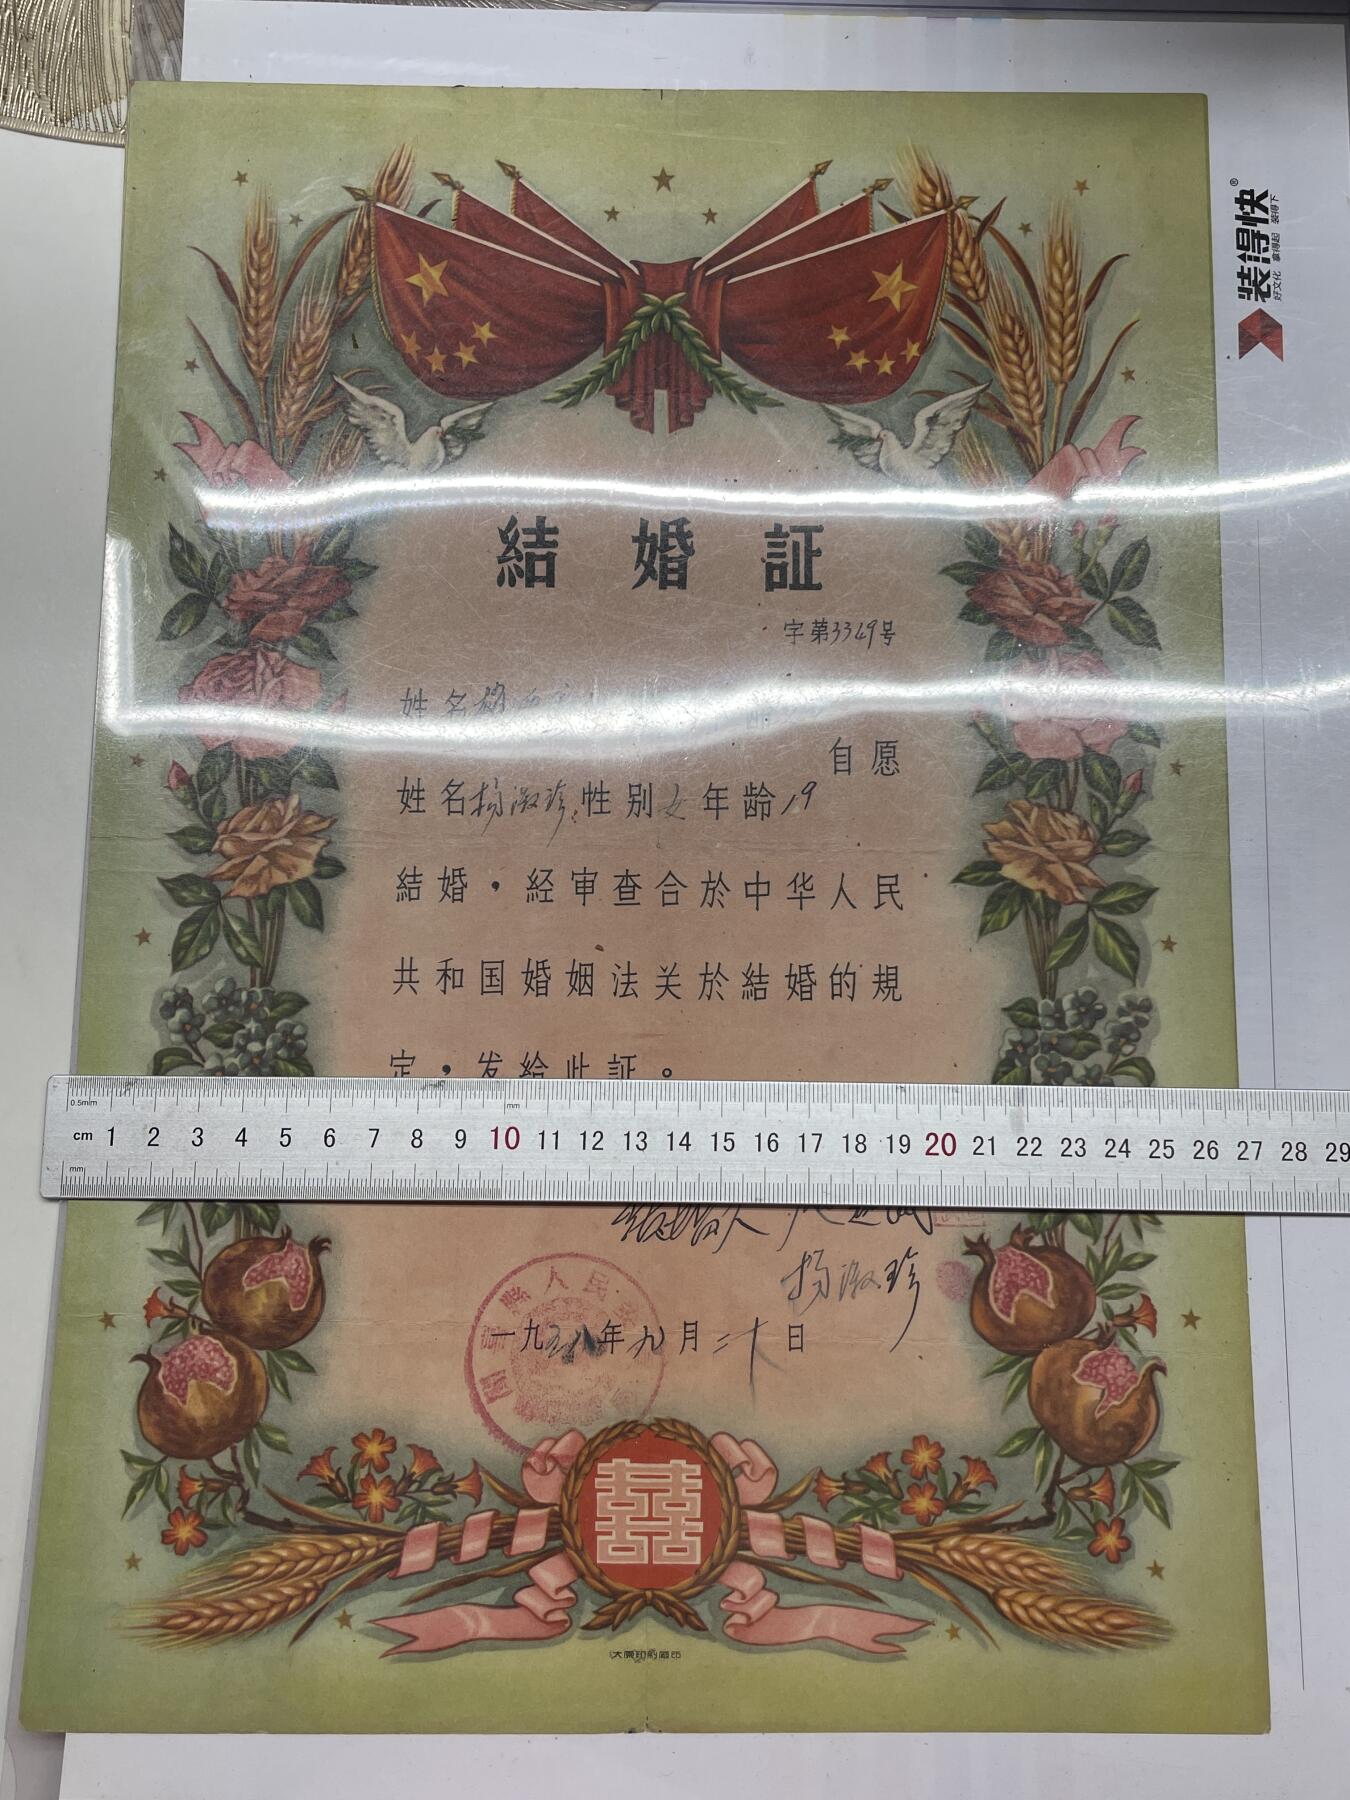 装得快®
好文化 拿得起 装得下
結婚証
字第3349号
姓名
自愿
姓名杨淑珍性别女年龄19
結婚，经审查合於中华人民
共和国婚姻法关於結婚的規
定，发給此証。
0.5mm mm
cm 1 2 3 4 5 6 7 8 9 10 11 12 13 14 15 16 17 18 19 20 21 22 23 24 25 26 27 28 29
mm mm
結婚人
杨淑珍
縣人民
一九五八年九月二十日
囍